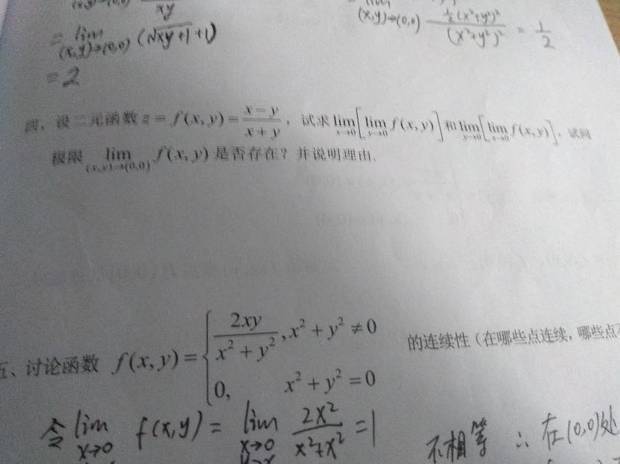 xy
= lim (x,y)→(0,0) (√xy+1 +1)
= 2
(x,y)→(0,0) ½(x²+y²)² / (x²+y²)² = 1/2
四、设二元函数 z = f(x, y) = (x−y)/(x+y)，试求 lim x→0 [lim y→0 f(x, y)] 和 lim y→0 [lim x→0 f(x, y)]，试问
极限 lim (x,y)→(0,0) f(x, y) 是否存在？并说明理由.
五、讨论函数 f(x, y) = { 2xy/(x²+y²), x² + y² ≠ 0
0, x² + y² = 0
的连续性（在哪些点连续，哪些点
令 lim x→0 f(x,y) = lim x→0 2x²/(x²+x²) = 1
不相等 ∴ 在(0,0)处